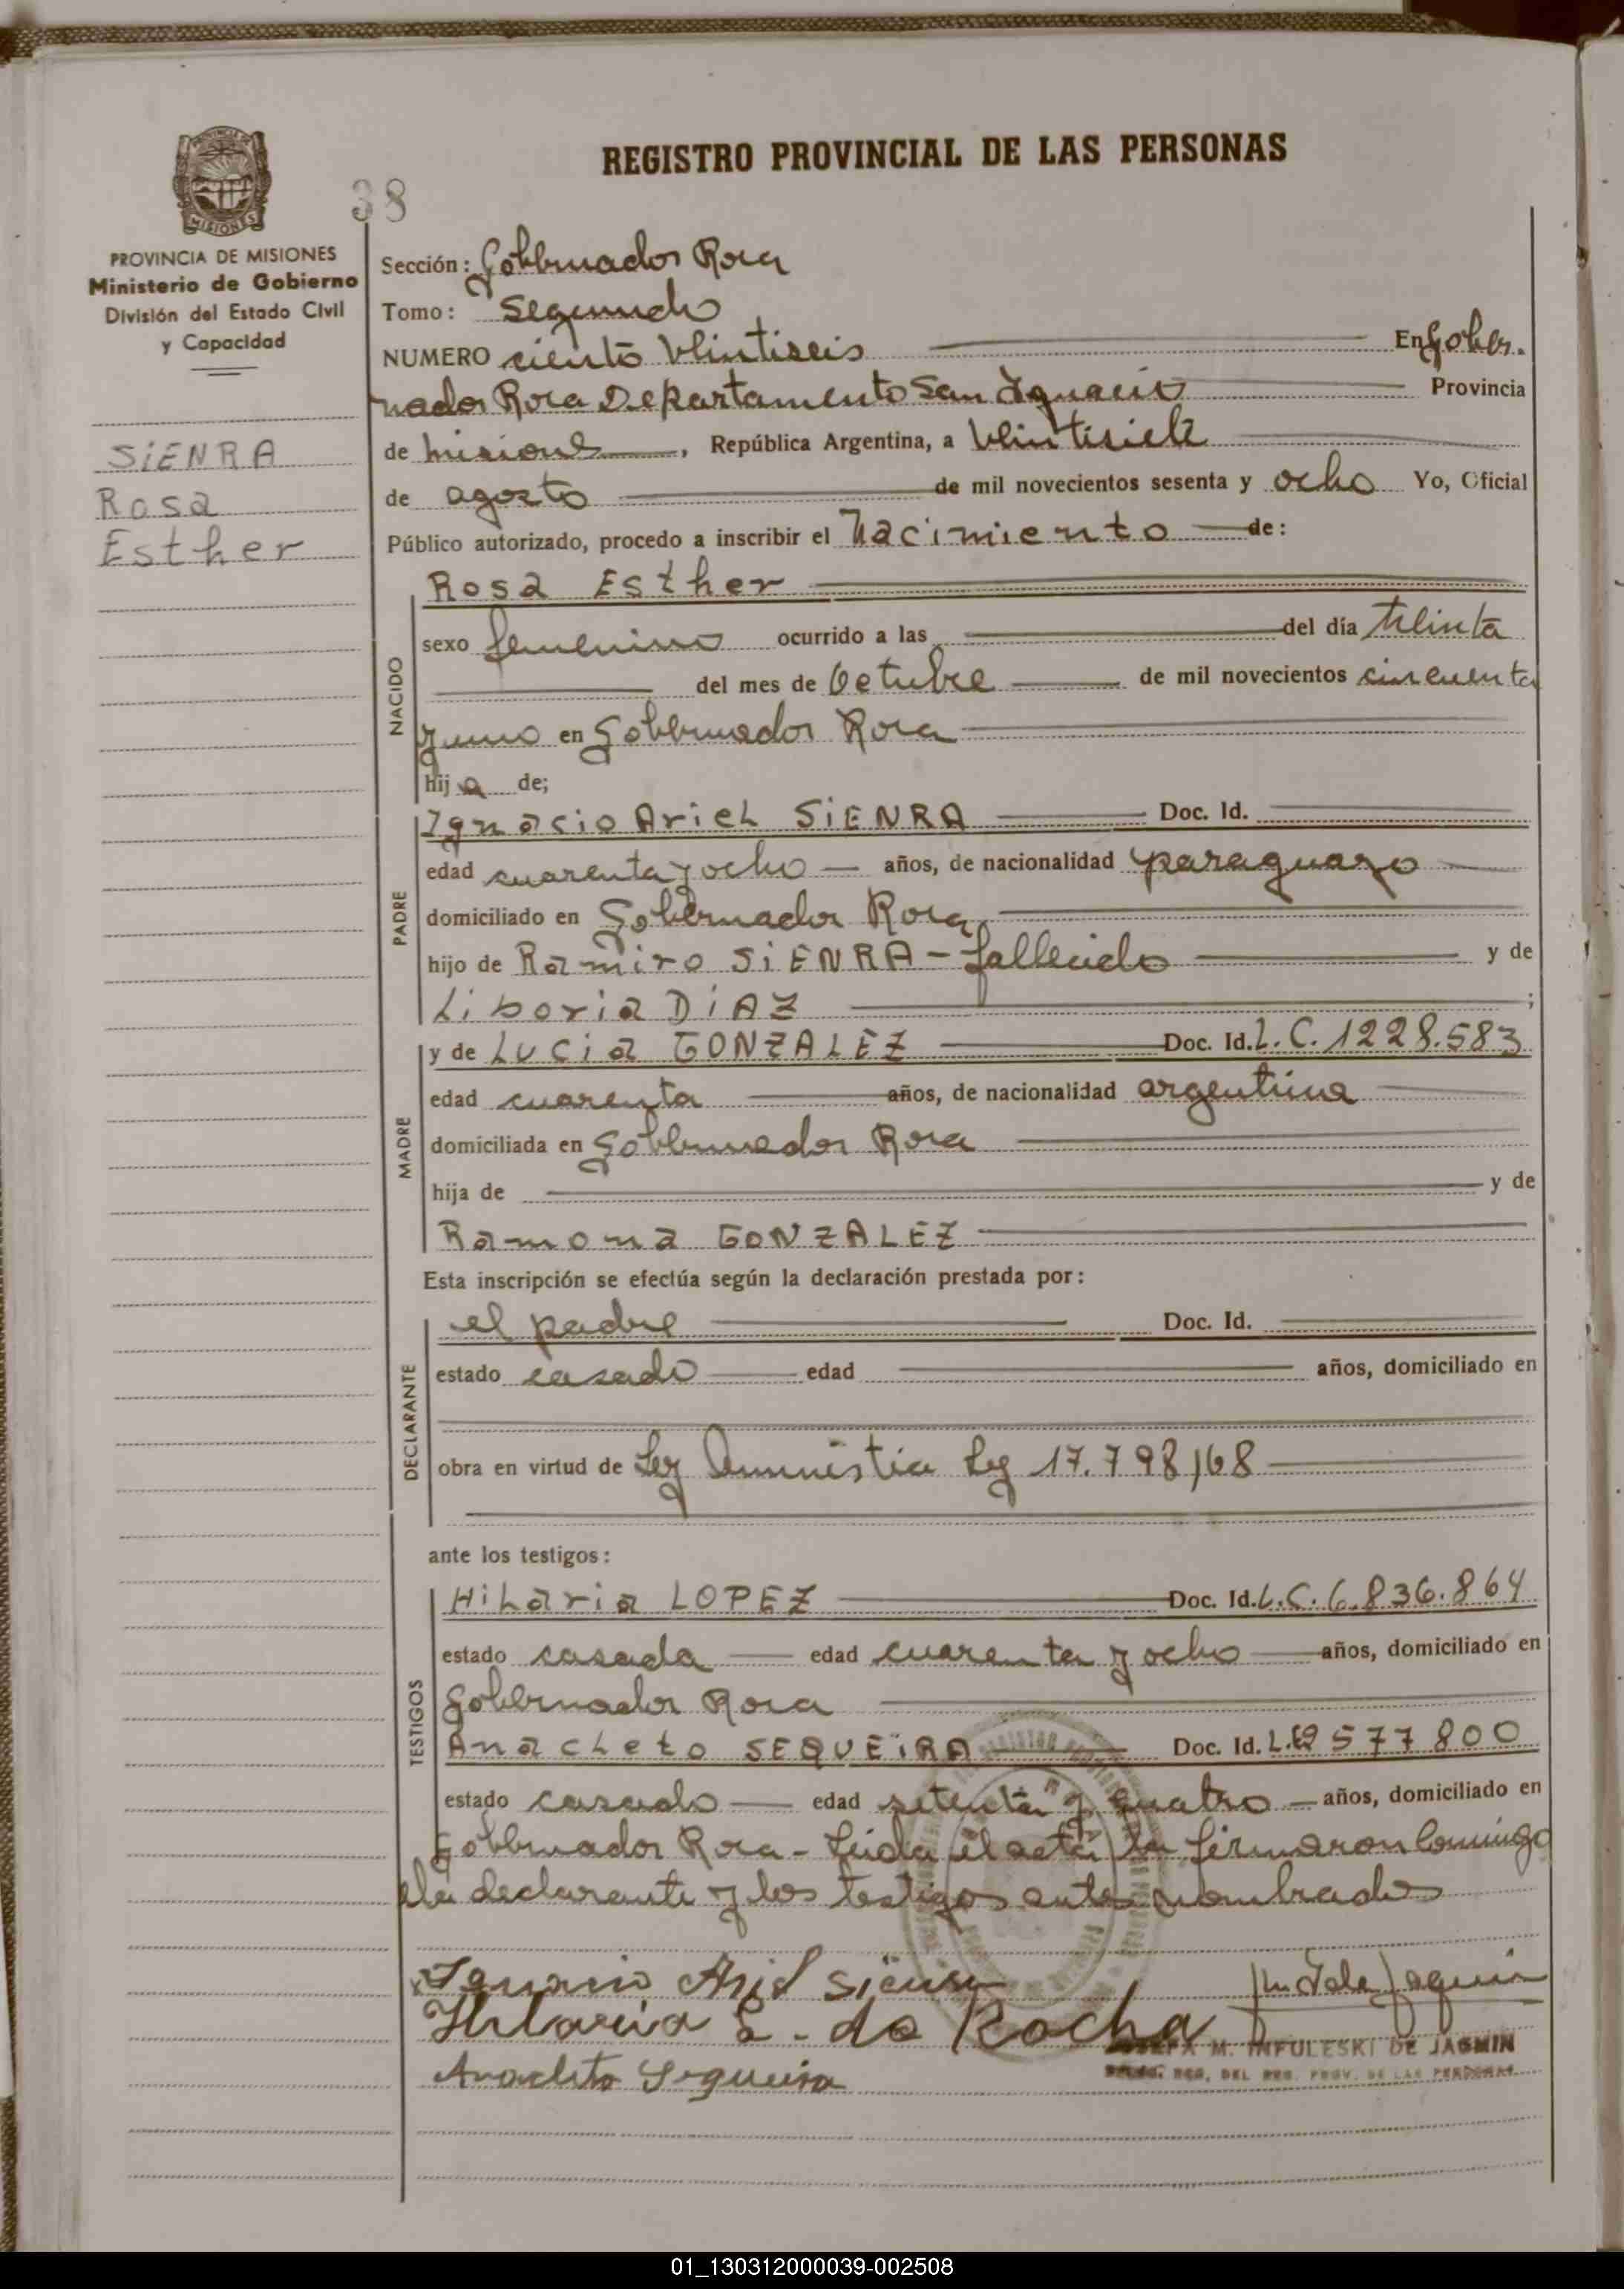 REGISTRO PROVINCIAL DE LAS PERSONAS
PROVINCIA DE MISIONES
Ministerio de Gobierno
División del Estado Civil
y Capacidad
38
SiENRA
Rosa
Esther
Sección: Gobernador Roca
Tomo: Segundo
NUMERO ciento veintiseis En Gober.
nador Roca Departamento San Ignacio Provincia
de Misiones, República Argentina, a veintisiete
de agosto de mil novecientos sesenta y ocho Yo, Oficial
Público autorizado, procedo a inscribir el Nacimiento de:
NACIDO
Rosa Esther
sexo femenino ocurrido a las del día treinta
del mes de Octubre de mil novecientos cincuenta
y uno en Gobernador Roca
hija de;
PADRE
Ignacio Ariel SiENRA Doc. Id.
edad cuarenta y ocho años, de nacionalidad paraguayo
domiciliado en Gobernador Roca
hijo de Ramiro SiENRA - fallecido y de
Liboria DiAZ ;
MADRE
y de Lucia GONZALEZ Doc. Id. L.C. 1228.583
edad cuarenta años, de nacionalidad argentina
domiciliada en Gobernador Roca
hija de y de
Ramona GONZALEZ
Esta inscripción se efectúa según la declaración prestada por:
DECLARANTE
el padre Doc. Id.
estado casado edad años, domiciliado en
obra en virtud de Ley Amnistia Ley 17.798/68
ante los testigos:
TESTIGOS
HiLaria LOPEZ Doc. Id. L.C. 6.836.864
estado casada edad cuarenta y ocho años, domiciliado en
Gobernador Roca
Anacleto SEQUEiRA Doc. Id. 577800
estado casado edad setenta y cuatro años, domiciliado en
Gobernador Roca - Leida el acta la firmaron conmigo
declarante y los testigos antes nombrados
Ignacio Ariel Sienra
Hilaria L. da Rocha
M. INFULESKI DE JAGMIN
DEL REG. PROV. DE LAS PERSONAS
Anacleto Sequeira
01_130312000039-002508